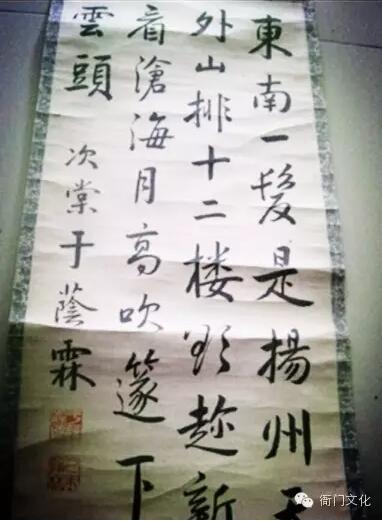 東南一髮是揚州天
外山排十二楼欲趂新
看滄海月高吹篴下
雲頭 次棠于蔭霖
衙门文化